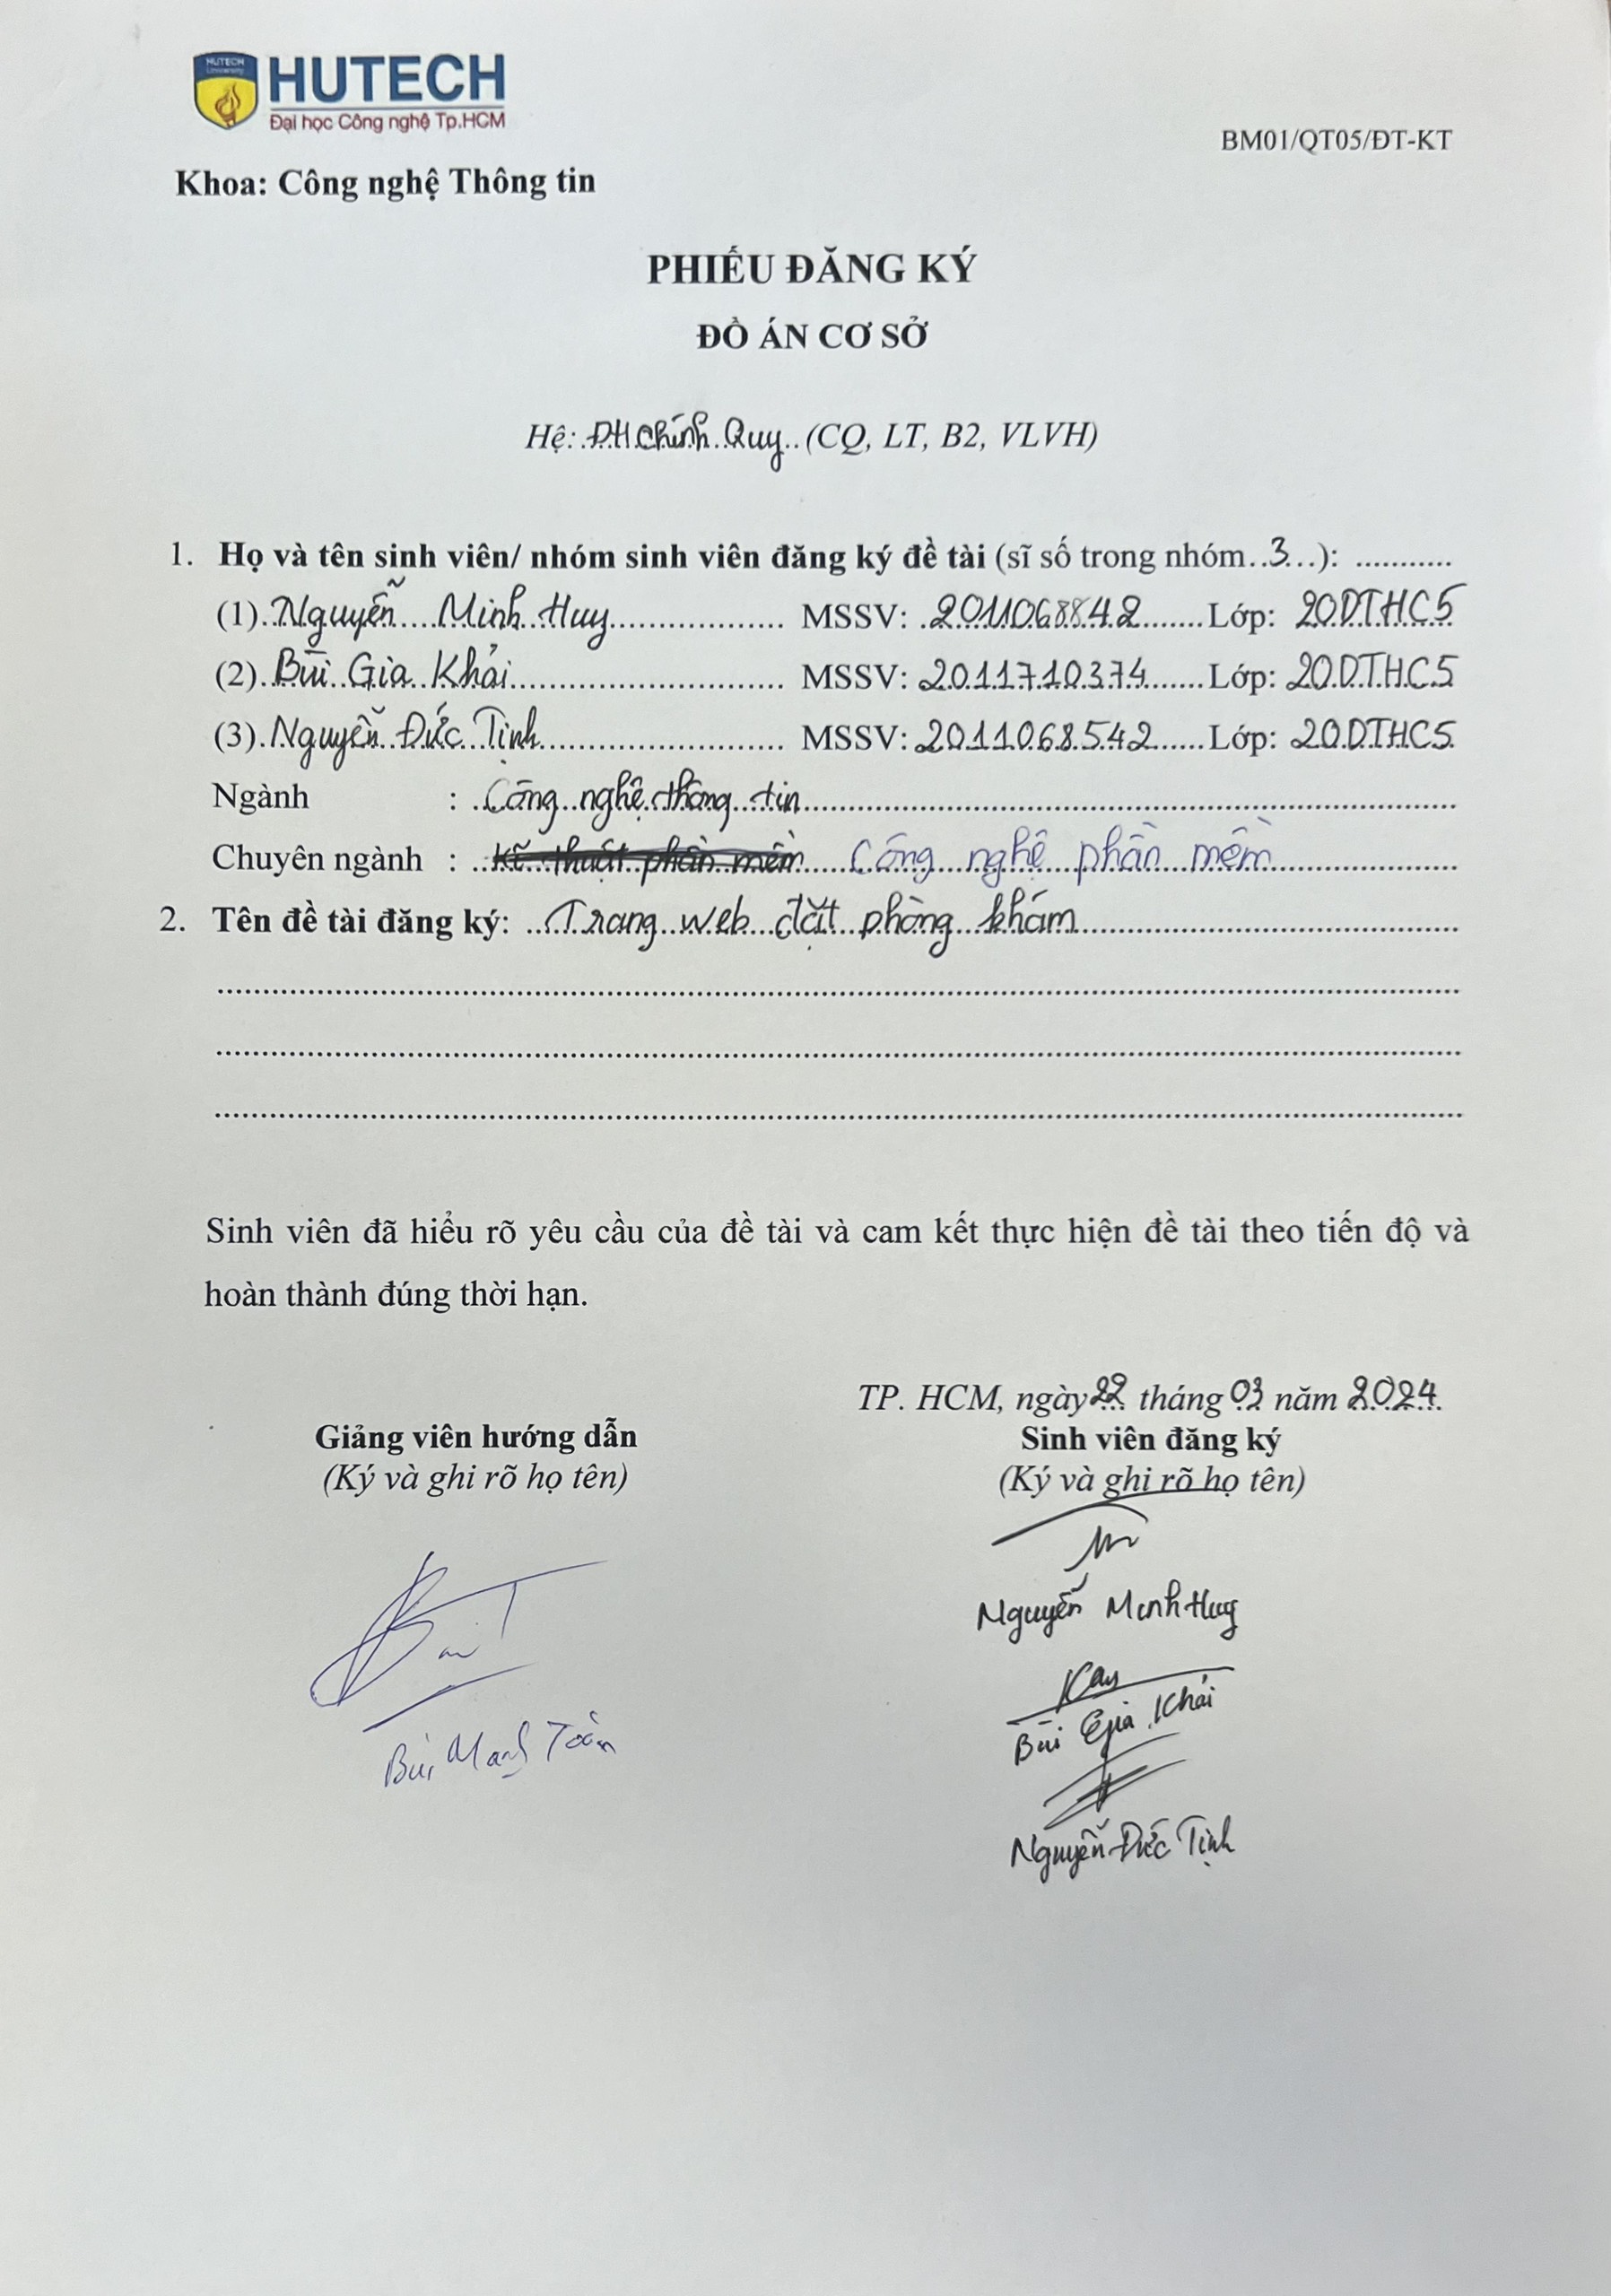 HUTECH University
HUTECH
Đại học Công nghệ Tp.HCM
BM01/QT05/ĐT-KT
Khoa: Công nghệ Thông tin
PHIẾU ĐĂNG KÝ
ĐỒ ÁN CƠ SỞ
Hệ: ĐH Chính Quy (CQ, LT, B2, VLVH)
1. Họ và tên sinh viên/ nhóm sinh viên đăng ký đề tài (sĩ số trong nhóm..3...): ...........
(1) Nguyễn Minh Huy MSSV: 2011068842 Lớp: 20DTHC5
(2) Bùi Gia Khải MSSV: 2011710374 Lớp: 20DTHC5
(3) Nguyễn Đức Tịnh MSSV: 2011068542 Lớp: 20DTHC5
Ngành : Công nghệ thông tin
Chuyên ngành : Kĩ thuật phần mềm Công nghệ phần mềm
2. Tên đề tài đăng ký: Trang web đặt phòng khám
Sinh viên đã hiểu rõ yêu cầu của đề tài và cam kết thực hiện đề tài theo tiến độ và
hoàn thành đúng thời hạn.
TP. HCM, ngày 22 tháng 03 năm 2024
Giảng viên hướng dẫn
(Ký và ghi rõ họ tên)
Bùi Mạnh Toàn
Sinh viên đăng ký
(Ký và ghi rõ họ tên)
Nguyễn Minh Huy
Bùi Gia Khải
Nguyễn Đức Tịnh